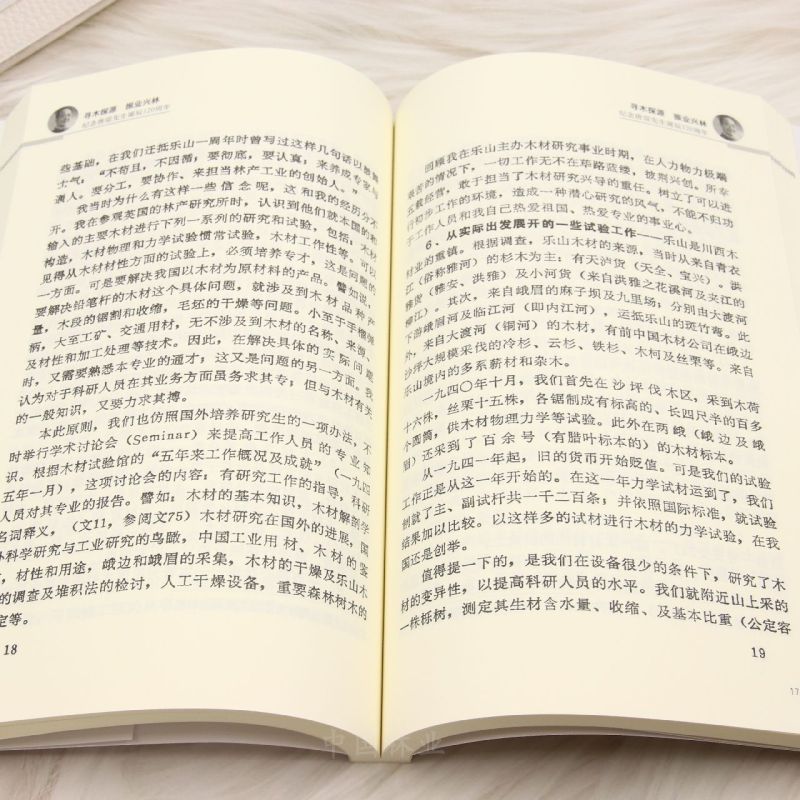 寻木探源 振业兴林
纪念唐燿先生诞辰120周年
些基础，在我们迁抵乐山一周年时曾写过这样几句话以励
士气："不苟且，不因循；要彻底，要认真；来养成专家与
通人。要分工，要协作、来担当林产工业的创始人。"
我当时为什么有这样一些信念呢，这和我的经历分不
开。我在参观英国的林产研究所时，认识到他们就本国的和
输入的主要木材进行下列一系列的研究和试验，包括：木材
构造，木材物理和力学试验惯常试验，木材工作性等。可以
见得从木材材性方面的试验上，必须培养专才，这是问题的
一方面。可是要解决我国以木材为原材料的产品。譬如说，
要解决铅笔杆的木材这个具体问题，就涉及到木材品种产
量，木段的锯割和收缩，毛坯的干燥等问题。小至于手榴弹
柄，大至工矿、交通用材，无不涉及到木材的名称、来源、
及材性和加工处理等技术。因此，在解决具体的实际问题
时，又需要熟悉本专业的通才；这又是问题的另一方面。我
认为对于科研人员在其业务方面虽务求其专；但与木材有关
的一般知识，又要力求其搏。
本此原则，我们也仿照国外培养研究生的一项办法，不
时举行学术讨论会（Seminar）来提高工作人员的专业知
识。根据木材试验馆的"五年来工作概况及成就"（一九四
五年一月），这项讨论会的内容：有研究工作的指导，科研
人员对其专业的报告。譬如：木材的基本知识，木材解剖学
名词释义，（文11，参阅文75）木材研究在国外的进展，国
外科学研究与工业研究的鸟瞰，中国工业用材、木材的鉴
，材性和用途，峨边和峨眉的采集，木材的干燥及乐山木
的调查及堆积法的检讨，人工干燥设备，重要森林树木的
定等。
18
寻木探源 振业兴林
纪念唐燿先生诞辰120周年
回顾我在乐山主办木材研究事业时期，在人力物力极端
艰苦的情况下，一切工作无不在荜路蓝缕，披荆兴创。所幸
五载经营，敢于担当了木材研究兴导的重任。树立了可以进
行初步工作的环境，造成一种潜心研究的风气，不能不归功
于工作人员和我自己热爱祖国、热爱专业的事业心。
6、从实际出发展开的一些试验工作——乐山是川西木
材业的重镇。根据调查，乐山木材的来源，当时从来自青衣
江（俗称雅河）的杉木为主；有天泸货（天全、宝兴）。洪
雅货（雅安、洪雅）及小河货（来自洪雅之花溪河及夹江的
柳江）。其次，来自峨眉的麻子坝及九里场；分别由大渡河
下游峨眉河及临江河（即内江河），运抵乐山的斑竹湾。此
外，来自大渡河（铜河）的木材，有前中国木材公司在峨边
沙坪大规模采伐的冷杉、云杉、铁杉、木柯及丝栗等。来自
乐山境内的多系薪材和杂木。
一九四〇年十月，我们首先在沙坪伐木区，采到木荷
十六株，丝栗十五株，各锯制成有标高的、长四尺半的百多
个圆筒，供木材物理力学等试验。此外在两峨（峨边及峨
眉）还采到了百余号（有腊叶标本的）的木材标本。
从一九四一年起，旧的货币开始贬值。可是我们的试验
工作正是从这一年开始的。在这一年力学试材运到了，我们
制就了主、副试杆共一千二百条；并依照国际标准，就试验
结果加以比较。以这样多的试材进行木材的力学试验，在我
国还是创举。
值得提一下的，是我们在设备很少的条件下，研究了木
材的变异性，以提高科研人员的水平。我们就附近山上采的
一株栎树，测定其生材含水量、收缩、及基本比重（公定容
19
17
中国林业